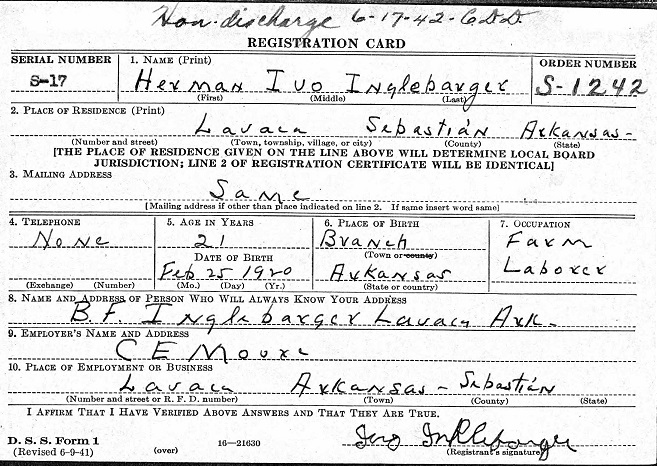 Hon. discharge 6-17-42-C.D.D.
REGISTRATION CARD
SERIAL NUMBER 1. NAME (Print) ORDER NUMBER
S-17 Herman Ivo Inglebarger S-1242
(First) (Middle) (Last)
2. PLACE OF RESIDENCE (Print)
Lavaca Sebastian Arkansas-
(Number and street) (Town, township, village, or city) (County) (State)
[THE PLACE OF RESIDENCE GIVEN ON THE LINE ABOVE WILL DETERMINE LOCAL BOARD
JURISDICTION; LINE 2 OF REGISTRATION CERTIFICATE WILL BE IDENTICAL]
3. MAILING ADDRESS
Same
[Mailing address if other than place indicated on line 2. If same insert word same]
4. TELEPHONE 5. AGE IN YEARS 6. PLACE OF BIRTH 7. OCCUPATION
None 21 Branch Farm
DATE OF BIRTH (Town or county)
Feb 25 1920 Arkansas Laborer
(Exchange) (Number) (Mo.) (Day) (Yr.) (State or country)
8. NAME AND ADDRESS OF PERSON WHO WILL ALWAYS KNOW YOUR ADDRESS
B.F. Inglebarger Lavaca Ark-
9. EMPLOYER'S NAME AND ADDRESS
C E Moore
10. PLACE OF EMPLOYMENT OR BUSINESS
Lavaca Arkansas - Sebastian
(Number and street or R. F. D. number) (Town) (County) (State)
I AFFIRM THAT I HAVE VERIFIED ABOVE ANSWERS AND THAT THEY ARE TRUE.
D. S. S. Form 1
(Revised 6-9-41) (over) 16—21630 (Registrant's signature)